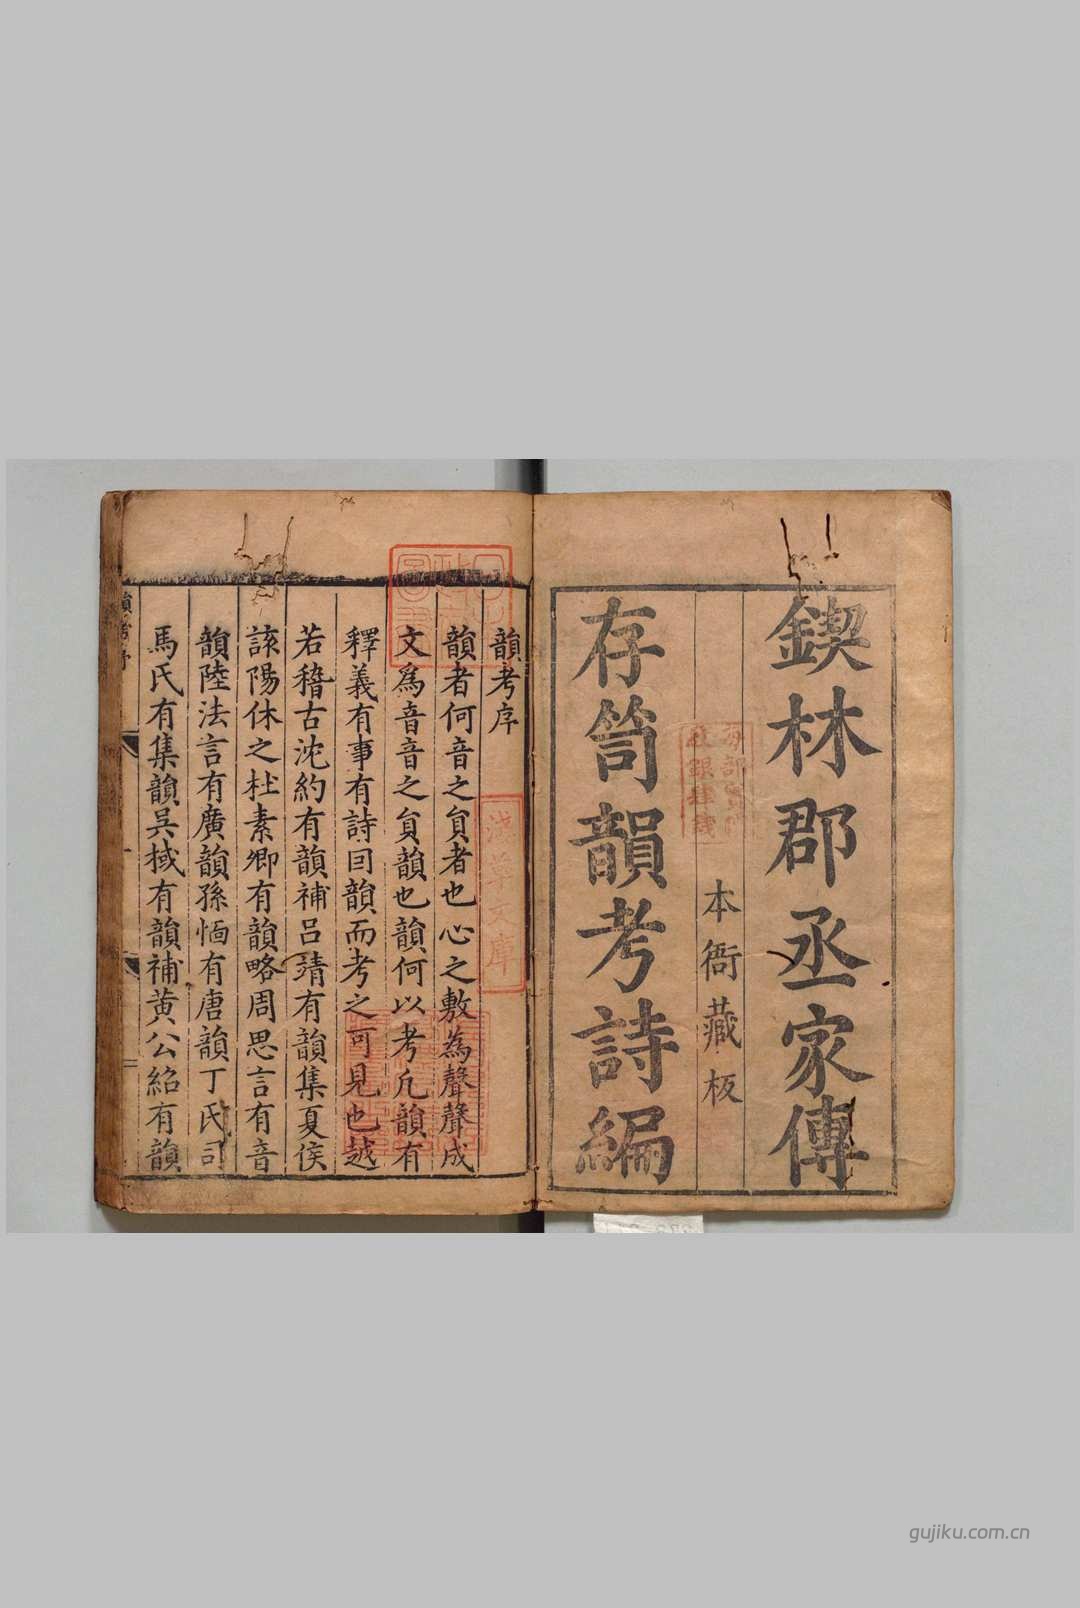 鍥林郡丞家傳
本衙藏板
存笥韻考詩編
韻考序
韻者何音之負者也心之敷為聲聲成
文爲音音之負韻也韻何以考凡韻有
釋義有事有詩囙韻而考之可見也越
若稽古沈約有韻補吕靖有韻集夏侯
該陽休之杜素卿有韻略周思言有音
韻陸法言有廣韻孫愐有唐韻丁氏司
馬氏有集韻吳棫有韻補黄公紹有韻
韻考序
淺草文庫
gujiku.com.cn